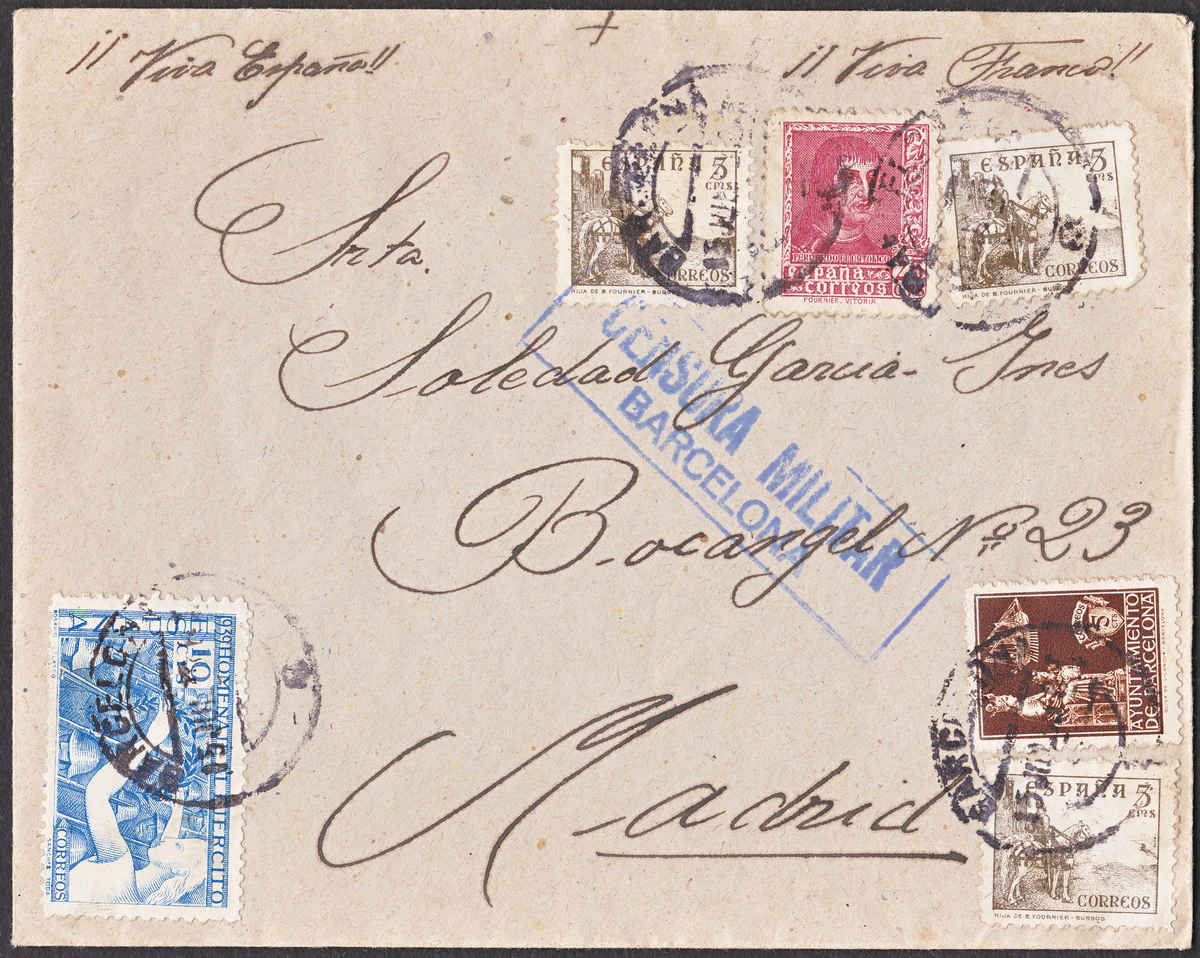 ¡¡ Viva España!!
¡¡ Viva Franco!!
ESPAÑA 5
cms
CORREOS
HIJA DE B. FOURNIER - BURGOS
FERNANDO EL CATOLICO
España
correos
FOURNIER, VITORIA
ESPAÑA 5
cms
CORREOS
HIJA DE B. FOURNIER
Srta.
Soledad Garcia-Ines
CENSURA MILITAR
BARCELONA
Bocangel Nº 23
Madrid
1939 HOMENAJE AL EJERCITO
10
CORREOS
SANCHEZ TODA
BARCELONA
AYUNTAMIENTO
DE BARCELONA
5
ESPAÑA 5
cms
CORREOS
HIJA DE B. FOURNIER - BURGOS